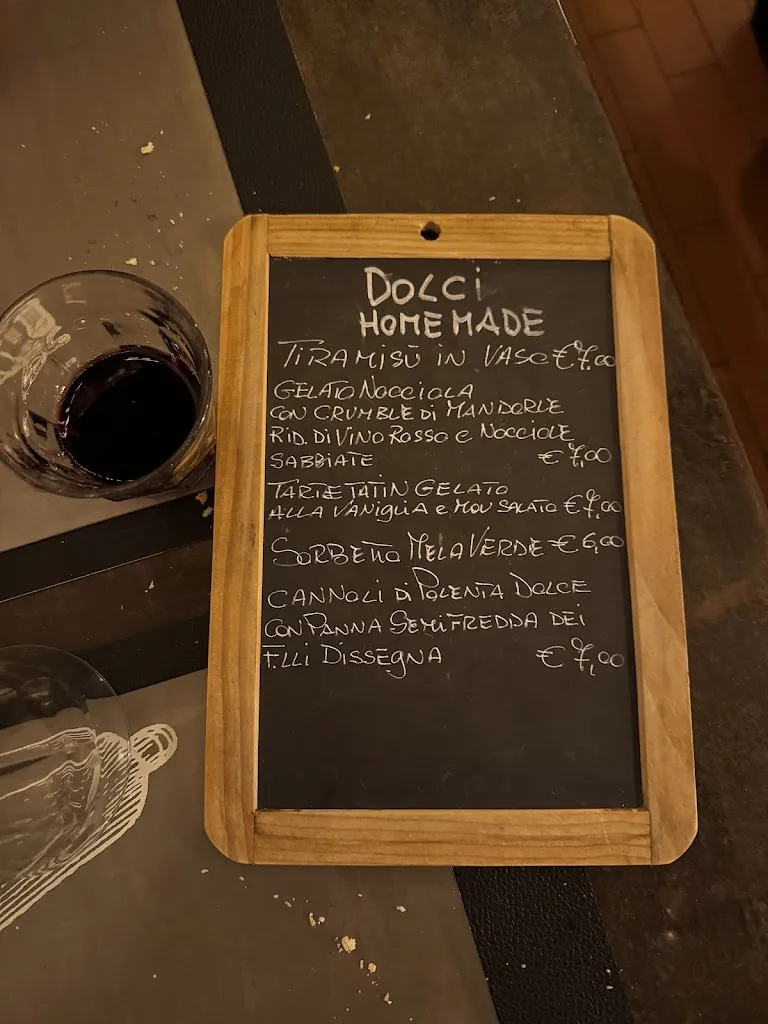 DOLCI
HOMEMADE
TIRAMISÙ IN VASO €7,00
GELATO NOCCIOLA
CON CRUMBLE DI MANDORLE
RID. DI VINO ROSSO e NOCCIOLE
SABBIATE € 7,00
TARTE TATIN GELATO
ALLA VANIGLIA e MOU SALATO €7,00
SORBETTO MELA VERDE €6,00
CANNOLI DI POLENTA DOLCE
CON PANNA SEMIFREDDA DEI
F.LLI DISSEGNA € 7,00